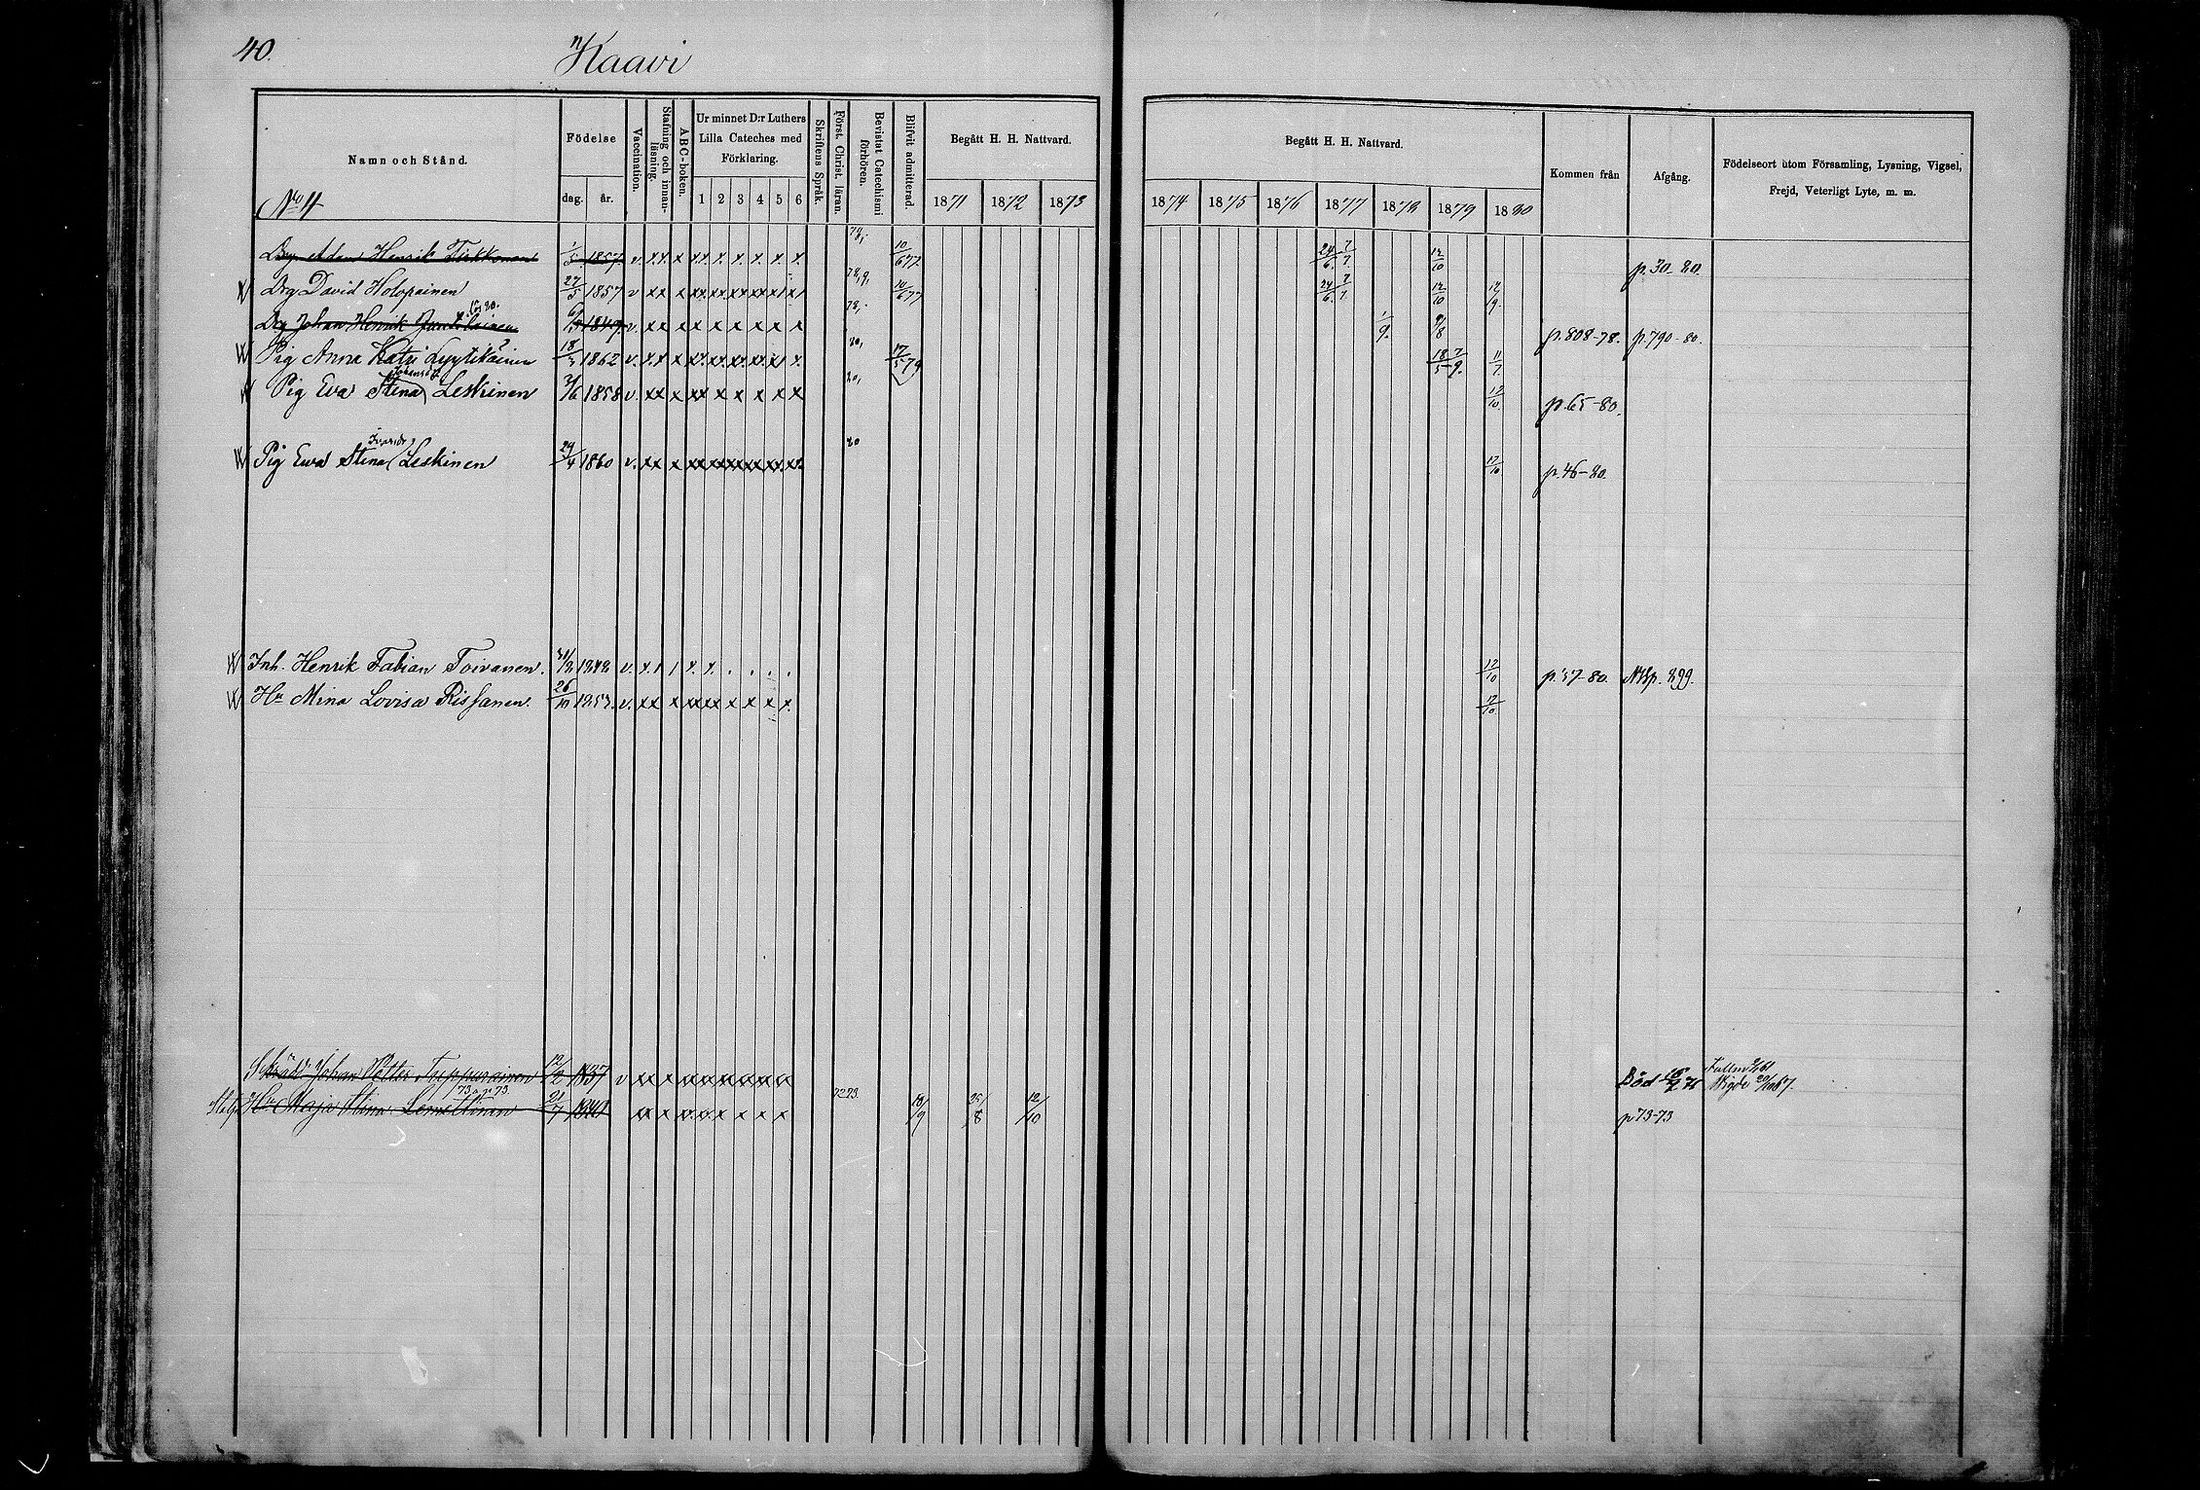 40.
n/Kaavi
Namn och Stånd.
Födelse
dag. år.
Vaccination.
Stafning och innanläsning.
ABC-boken.
Ur minnet D:r Luthers Lilla Cateches med Förklaring.
1 2 3 4 5 6
Skriftens Språk.
Först. Christ. läran.
Bevistat Catechismi förhören.
Blifvit admitterad.
Begått H. H. Nattvard.
1871 1872 1873
Begått H. H. Nattvard.
1874 1875 1876 1877 1878 1879 1880
Kommen från
Afgång.
Födelseort utom Församling, Lysning, Vigsel, Frejd, Veterligt Lyte, m. m.
Henrik Tirkkonen 1/5 1857 v. x.x. x x.x. x. x. x. x. x. 78, 10/6 77 24/6 7/7 12/10 p. 30-80.
Drg David Holopainen 27/5 1857 v xx x xx. xx xx xx x 78,9, 10/6 77 24/6 7/7 12/10 12/9.
Drg Johan Henrik 1849 v. xx x xx x x x x x 78, 1/9. 9/8 p. 808-78. p. 790-80.
Pig Anna Katri Lyytikäinen 18/3 1862 v. x.x x xx. xx. xx. xx. xx x. 80, 17/5 79 18/5 7/9. 11/7.
Pig Eva Stina Leskinen 1858 v. xx x xx x x x x x 80, 12/10. p. 65-80.
Pig Ewa Stina Leskinen 29/4 1860 v. xx x xx xx xx xx xx. xx. 80 17/10 p. 46-80.
Inh. Henrik Fabian Toivanen. 1842 v. 12/10 p. 57-80. p. 899.
Hu Mina Lovisa Rissanen. 26/10 1853. v. xx x xx xx x x x x. 17/10.
Johan Petter Tuppurainen 12/2 1837 v xx x xx xx xx xx xx xx Död 75 Vigde 67.
Maja Stina Lemettinen 21/7 1840 xx x xx x x x x x 72.73. 10/9 25/8 12/10 p 73-73